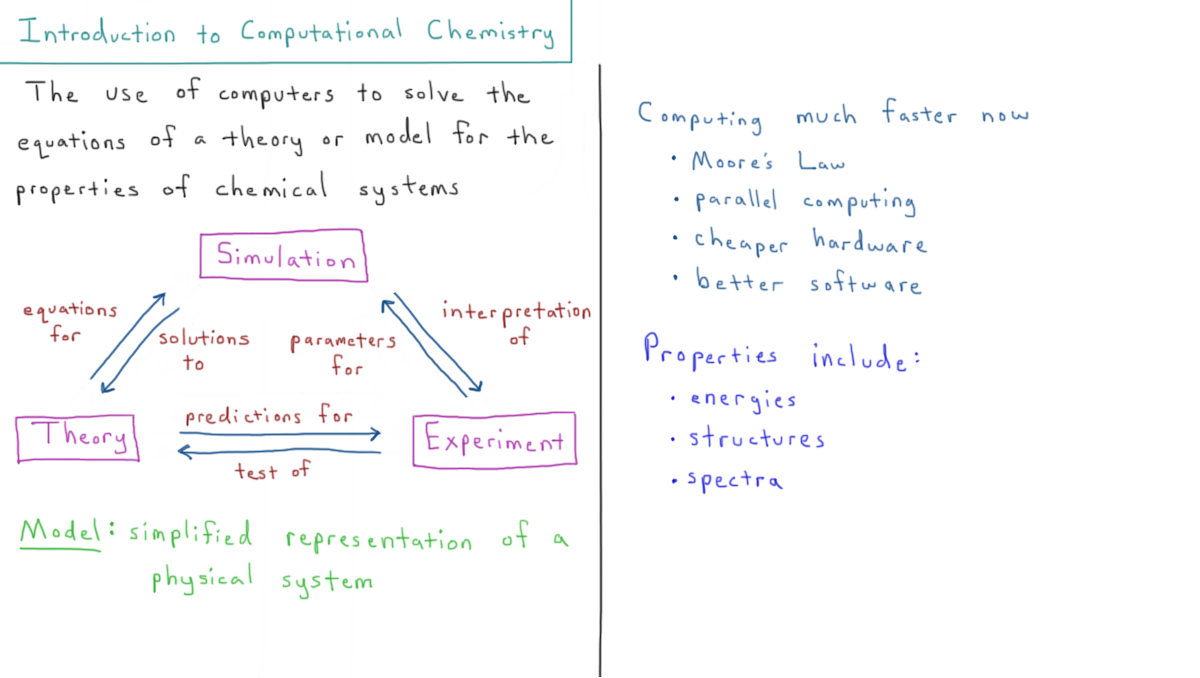 Introduction to Computational Chemistry
The use of computers to solve the
equations of a theory or model for the
properties of chemical systems
Simulation
equations
for
solutions
to
parameters
for
interpretation
of
Theory
predictions for
test of
Experiment
Model: simplified representation of a
physical system
Computing much faster now
• Moore's Law
• parallel computing
• cheaper hardware
• better software
Properties include:
• energies
• structures
• spectra